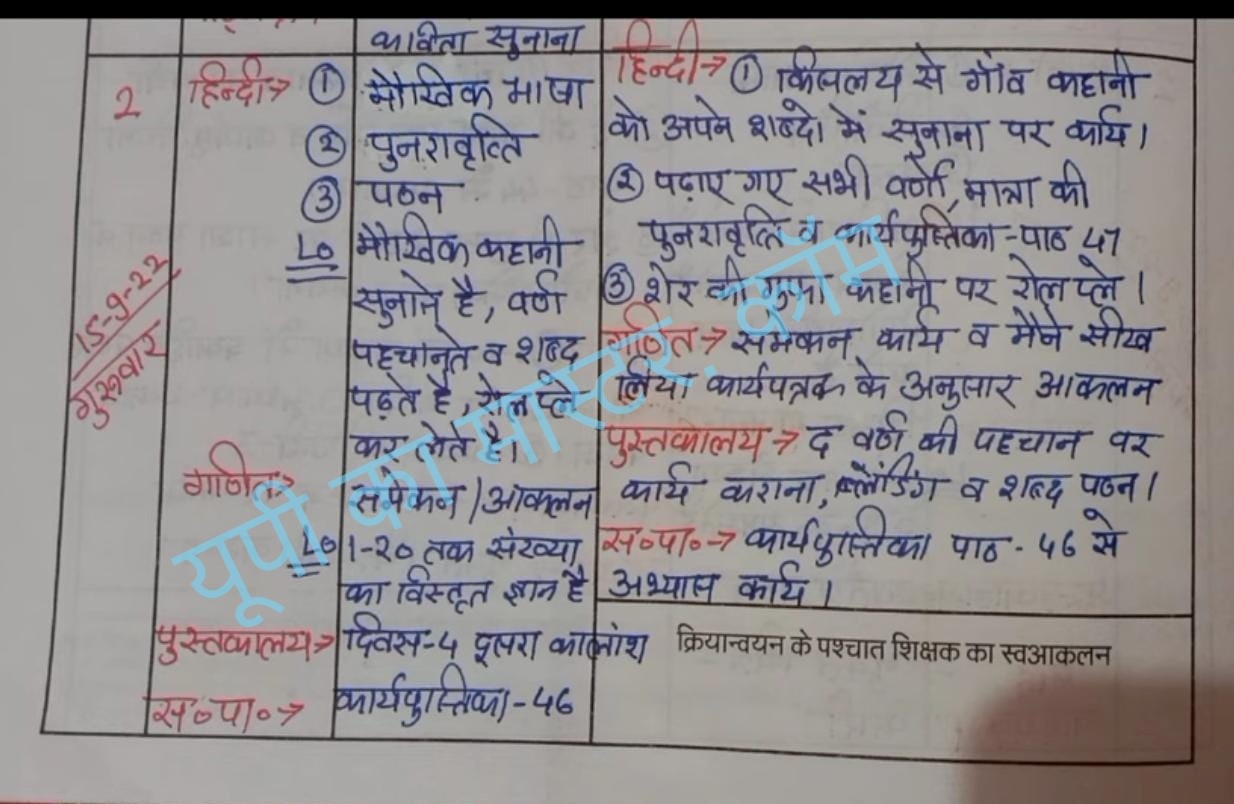 कविता सुनाना
2
15-9-22
गुरूवार
हिन्दी→ ① मौखिक भाषा
② पुनरावृत्ति
③ पठन
LO मौखिक कहानी
सुनाते है, वर्ण
पहचानते व शब्द
पढ़ते है, रोल प्ले
कर लेते है।
गणित→
समेकन/आकलन
LO 1-20 तक संख्या
का विस्तृत ज्ञान है
पुस्तकालय→ दिवस-4 दूसरा कालांश
स०पा०→ कार्यपुस्तिका-46
हिन्दी→ ① किसलय से गाँव कहानी
को अपने शब्दो में सुनाना पर कार्य।
② पढ़ाए गए सभी वर्णो, मात्रा की
पुनरावृत्ति व कार्यपुस्तिका-पाठ 47
③ शेर की गुफा कहानी पर रोल प्ले।
गणित→ समेकन कार्य व मैने सीख
लिया कार्यपत्रक के अनुसार आकलन
पुस्तकालय→ द वर्ण की पहचान पर
कार्य कराना, ब्लेंडिंग व शब्द पठन।
स०पा०→ कार्यपुस्तिका पाठ-46 से
अभ्यास कार्य।
क्रियान्वयन के पश्चात शिक्षक का स्वआकलन
यूपी का मास्टर. कॉम